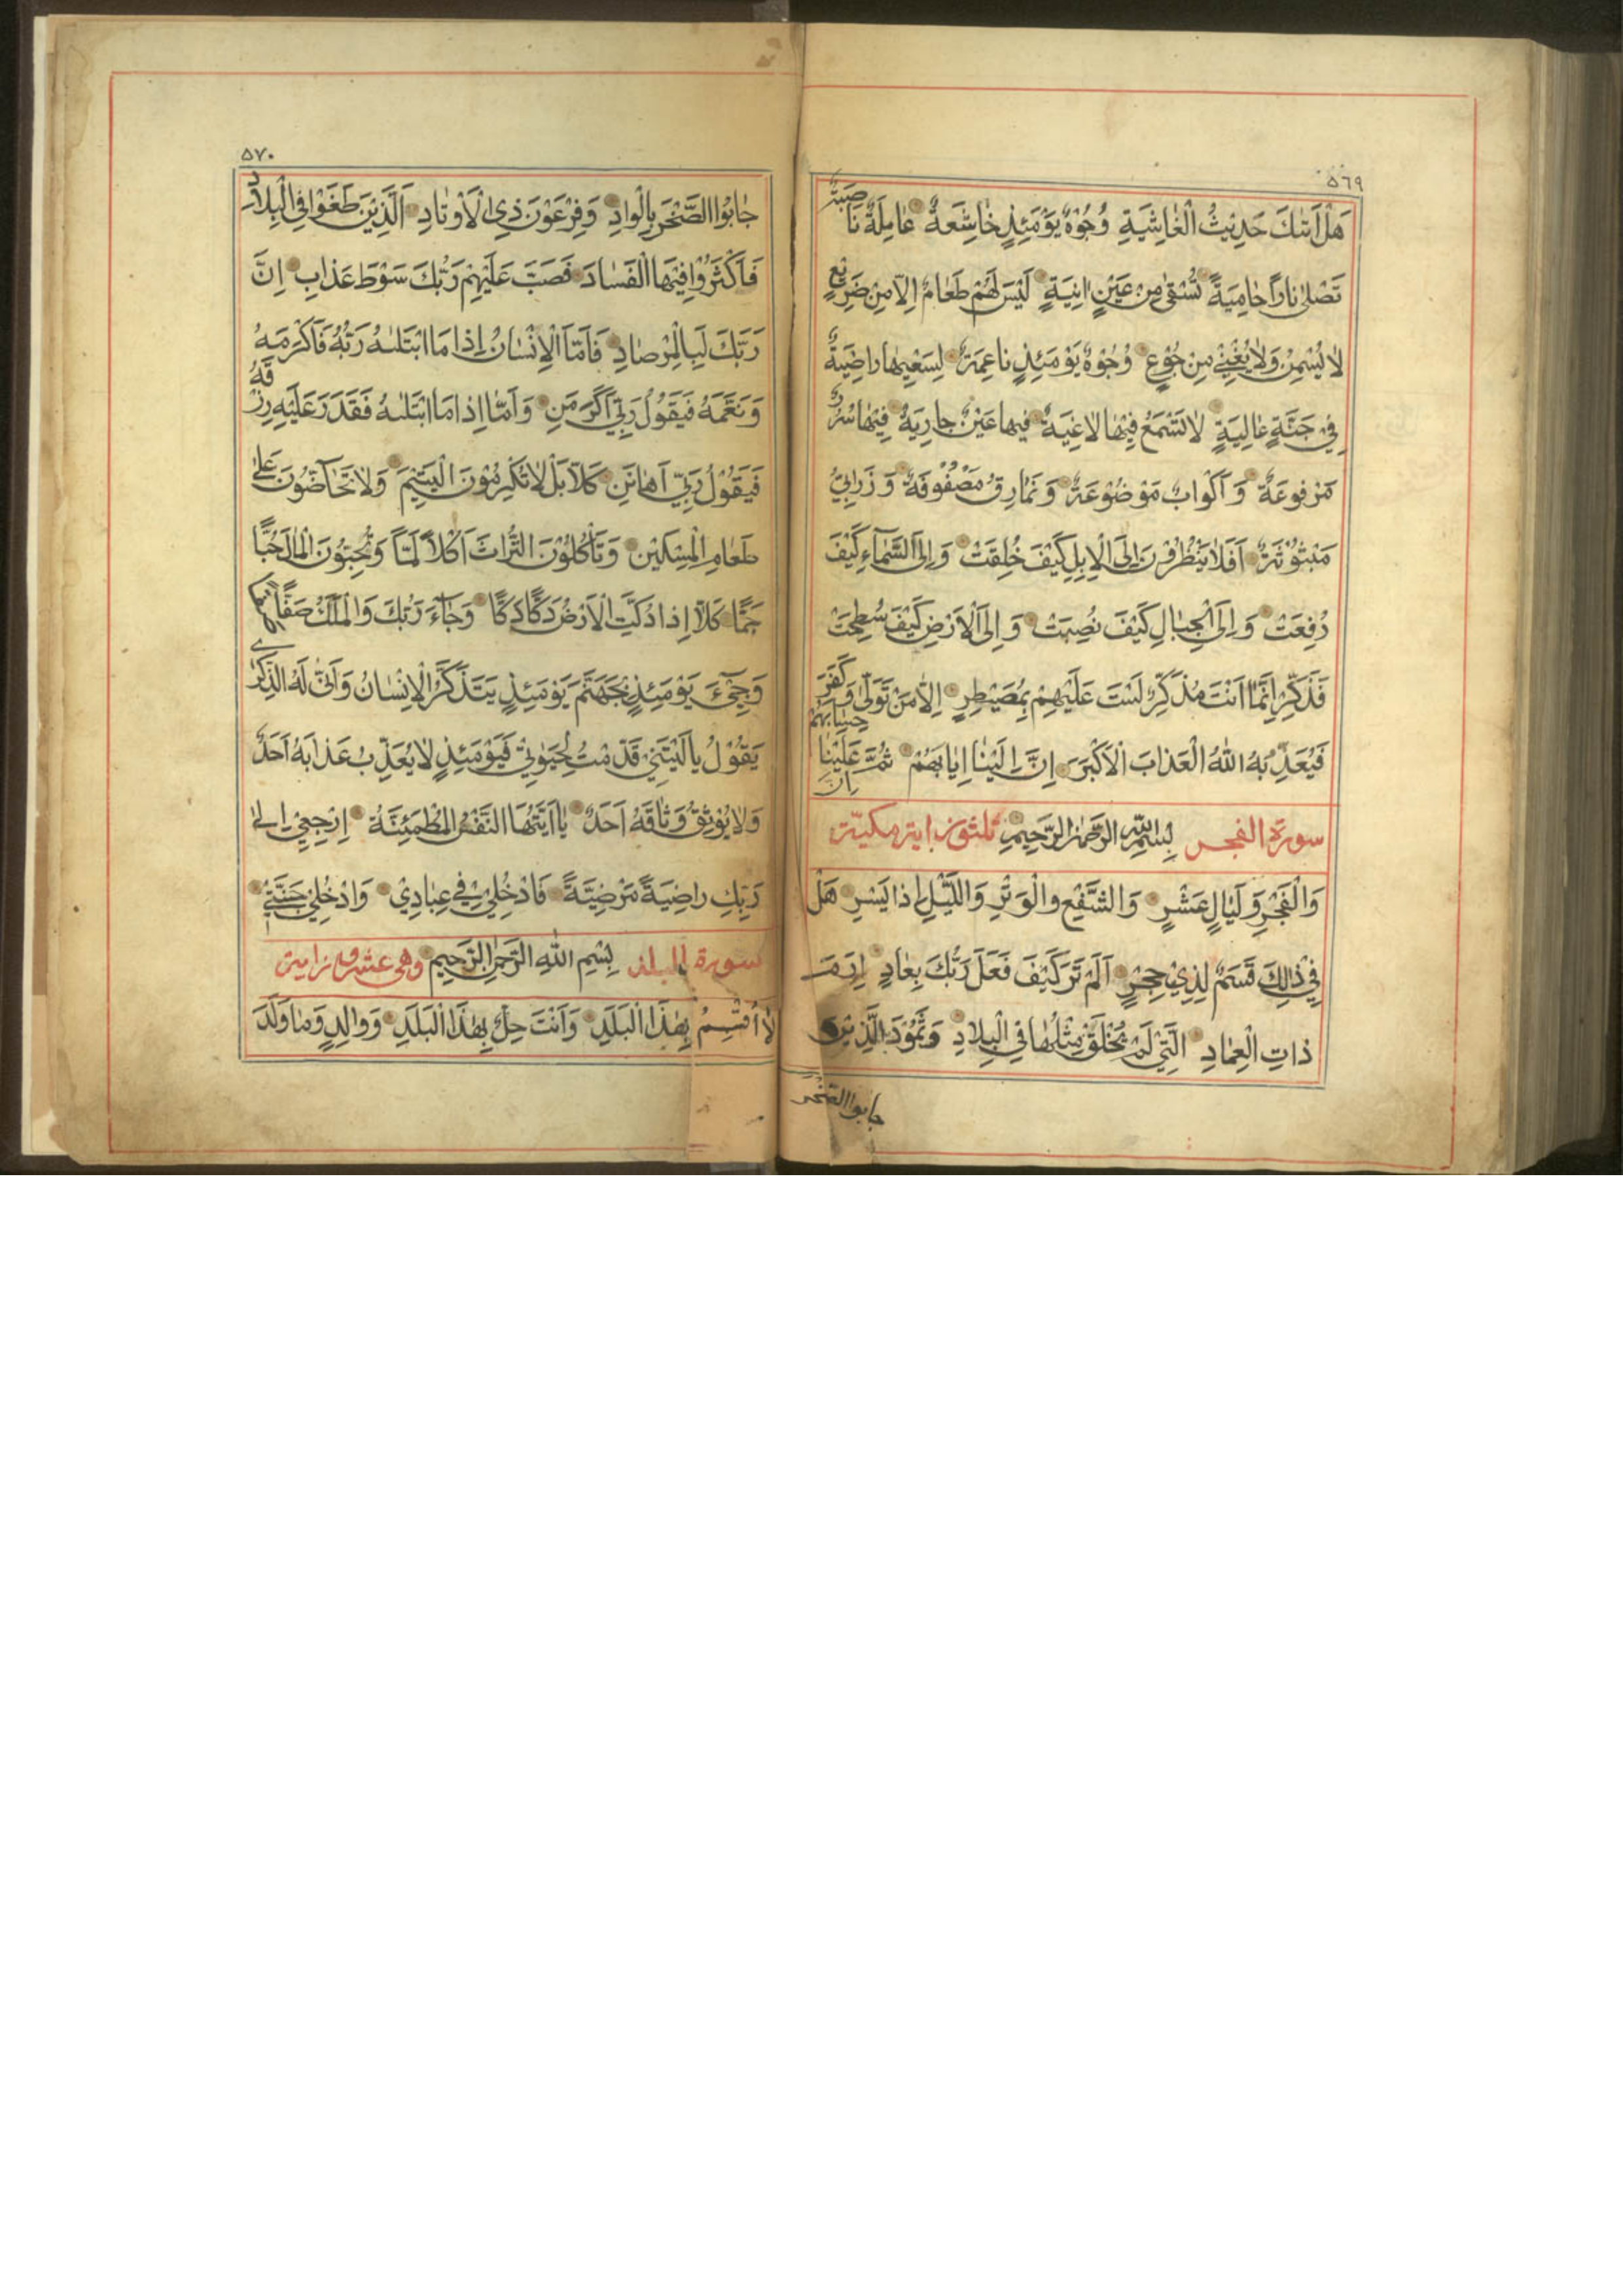 ٥٦٩
هَلْ اَتٰىكَ حَدِيْثُ الْغٰاشِيَةِ وُجُوْهٌ يَوْمَئِذٍ خٰاشِعَةٌ عٰامِلَةٌ نٰاصِبَةٌ
تَصْلىٰ نٰاراً حٰامِيَةً تُسْقىٰ مِنْ عَيْنٍ اٰنِيَةٍ لَيْسَ لَهُمْ طَعٰامٌ اِلاّٰ مِنْ ضَرِيْعٍ
لاٰ يُسْمِنُ وَلاٰ يُغْنِيْ مِنْ جُوْعٍ وُجُوْهٌ يَوْمَئِذٍ نٰاعِمَةٌ لِسَعْيِهٰا رٰاضِيَةٌ
فِيْ جَنَّةٍ عٰالِيَةٍ لاٰ تَسْمَعُ فِيْهٰا لاٰغِيَةً فِيهٰا عَيْنٌ جٰارِيَةٌ فِيْهٰا سُرُرٌ
مَرْفُوعَةٌ وَ اَكْوٰابٌ مَوْضُوْعَةٌ وَ نَمٰارِقُ مَصْفُوْفَةٌ وَ زَرٰابِيُّ
مَبْثُوْثَةٌ اَفَلاٰ يَنْظُرُوْنَ اِلَى الْاِبِلِ كَيْفَ خُلِقَتْ وَ اِلَى السَّمٰآءِ كَيْفَ
رُفِعَتْ وَ اِلَى الْجِبٰالِ كَيْفَ نُصِبَتْ وَ اِلَى الْاَرْضِ كَيْفَ سُطِحَتْ
فَذَكِّرْ اِنَّمٰا اَنْتَ مُذَكِّرٌ لَسْتَ عَلَيْهِمْ بِمُصَيْطِرٍ اِلاّٰ مَنْ تَوَلّٰى وَ كَفَرَ
فَيُعَذِّبُهُ اللّٰهُ الْعَذٰابَ الْاَكْبَرَ اِنَّ اِلَيْنٰا اِيٰابَهُمْ ثُمَّ اِنَّ عَلَيْنٰا حِسٰابَهُمْ
سورة الفجر بِسْمِ اللّٰهِ الرَّحْمٰنِ الرَّحِيْمِ ثلثون اية مكية
وَالْفَجْرِ وَ لَيٰالٍ عَشْرٍ وَ الشَّفْعِ والْوَتْرِ وَ اللَّيْلِ اِذٰا يَسْرِ هَلْ
فِيْ ذٰلِكَ قَسَمٌ لِذِيْ حِجْرٍ اَلَمْ تَرَ كَيْفَ فَعَلَ رَبُّكَ بِعٰادٍ اِرَمَ
ذٰاتِ الْعِمٰادِ الَّتِيْ لَمْ يُخْلَقْ مِثْلُهٰا فِي الْبِلاٰدِ وَ ثَمُوْدَ الَّذِيْنَ
جابوا الصخر
٥٧٠
جٰابُوا الصَّخْرَ بِالْوٰادِ وَ فِرْعَوْنَ ذِى الْاَوْتٰادِ اَلَّذِيْنَ طَغَوْا فِي الْبِلاٰدِ
فَاَكْثَرُوْا فِيْهَا الْفَسٰادَ فَصَبَّ عَلَيْهِمْ رَبُّكَ سَوْطَ عَذٰابٍ اِنَّ
رَبَّكَ لَبِالْمِرْصٰادِ فَاَمَّا الْاِنْسٰانُ اِذٰا مَا ابْتَلٰىهُ رَبُّهُ فَاَكْرَمَهُ
وَ نَعَّمَهُ فَيَقُوْلُ رَبِّيْ اَكْرَمَنِ وَ اَمّٰا اِذٰا مَا ابْتَلٰىهُ فَقَدَرَ عَلَيْهِ رِزْقَهُ
فَيَقُوْلُ رَبِّيْ اَهٰانَنِ كَلاّٰ بَلْ لاٰ تُكْرِمُوْنَ الْيَتِيْمَ وَ لاٰ تَحٰآضُّوْنَ عَلىٰ
طَعٰامِ الْمِسْكِيْنِ وَ تَأْكُلُوْنَ التُّرٰاثَ اَكْلاً لَمّاً وَ تُحِبُّوْنَ الْمٰالَ حُبّاً
جَمّاً كَلاّٰ اِذٰا دُكَّتِ الْاَرْضُ دَكّاً دَكّاً وَ جٰآءَ رَبُّكَ وَ الْمَلَكُ صَفّاً صَفّاً
وَ جِيْءَ يَوْمَئِذٍ بِجَهَنَّمَ يَوْمَئِذٍ يَتَذَكَّرُ الْاِنْسٰانُ وَ اَنّٰى لَهُ الذِّكْرٰى
يَقُوْلُ يٰا لَيْتَنِيْ قَدَّمْتُ لِحَيٰوتِيْ فَيَوْمَئِذٍ لاٰ يُعَذِّبُ عَذٰابَهُ اَحَدٌ
وَ لاٰ يُوْثِقُ وَثٰاقَهُ اَحَدٌ يٰا اَيَّتُهَا النَّفْسُ الْمُطْمَئِنَّةُ اِرْجِعِيْ اِلىٰ
رَبِّكِ رٰاضِيَةً مَرْضِيَّةً فَادْخُلِيْ فِيْ عِبٰادِيْ وَ ادْخُلِيْ جَنَّتِيْ
سورة البلد بِسْمِ اللّٰهِ الرَّحْمٰنِ الرَّحِيْمِ وهى عشرون اية
لاٰ اُقْسِمُ بِهٰذَا الْبَلَدِ وَ اَنْتَ حِلٌّ بِهٰذَا الْبَلَدِ وَ وٰالِدٍ وَ مٰا وَلَدَ